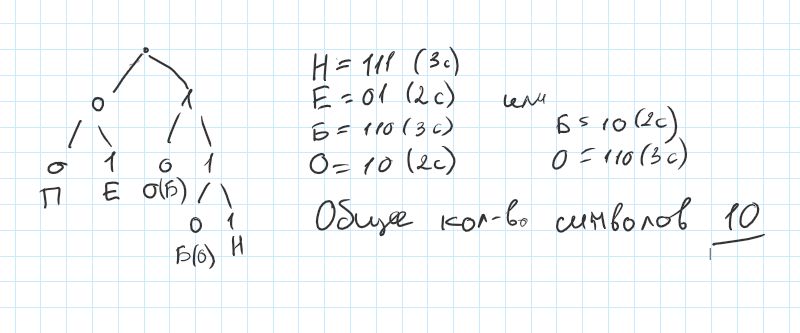 0 1
0 1 0 1
П Е О(Б)
0 1
Б(О) Н
Н = 111 (3с)
Е = 01 (2с) или
Б = 110 (3с) Б = 10 (2с)
О = 10 (2с) О = 110 (3с)
Общее кол-во символов 10